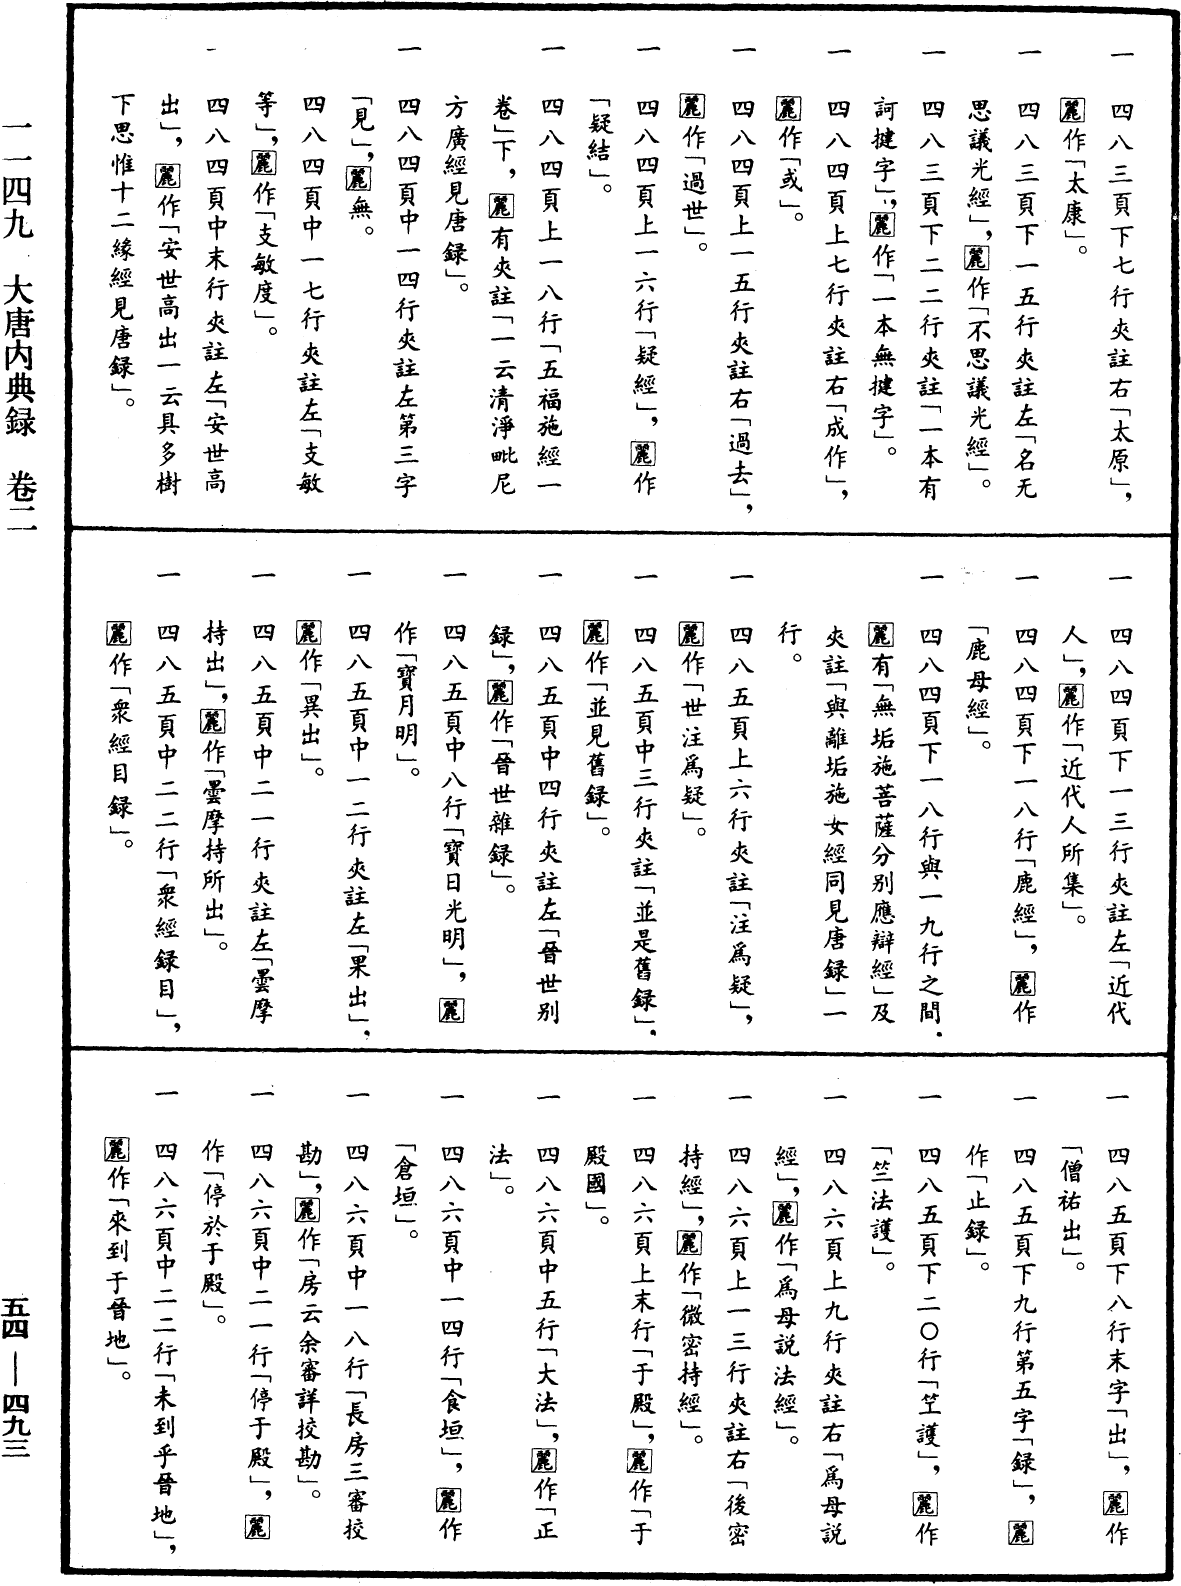 一 四八三頁下七行夾註右「太原」，
麗作「太康」。
一 四八三頁下一五行夾註左「名无
思議光經」，麗作「不思議光經」。
一 四八三頁下二二行夾註「一本有
訶揵字」，麗作「一本無揵字」。
一 四八四頁上七行夾註右「成作」，
麗作「或」。
一 四八四頁上一五行夾註右「過去」，
麗作「過世」。
一 四八四頁上一六行「疑經」，麗作
「疑結」。
一 四八四頁上一八行「五福施經一
卷」下，麗有夾註「一云清淨毗尼
方廣經見唐録」。
一 四八四頁中一四行夾註左第三字
「見」，麗無。
四八四頁中一七行夾註左「支敏
等」，麗作「支敏度」。
一 四八四頁中末行夾註左「安世高
出」，麗作「安世高出一云具多樹
下思惟十二緣經見唐録」。
一 四八四頁下一三行夾註左「近代
人」，麗作「近代人所集」。
一 四八四頁下一八行「鹿經」，麗作
「鹿母經」。
一 四八四頁下一八行與一九行之間，
麗有「無垢施菩薩分別應辯經」及
夾註「與離垢施女經同見唐録」一
行。
一 四八五頁上六行夾註「注爲疑」，
麗作「世注爲疑」。
一 四八五頁中三行夾註「並是舊録」，
麗作「並見舊録」。
一 四八五頁中四行夾註左「晉世別
録」，麗作「晉世雜録」。
一 四八五頁中八行「寶日光明」，麗
作「寶月明」。
一 四八五頁中一二行夾註左「果出」，
麗作「異出」。
一 四八五頁中二一行夾註左「曇摩
持出」，麗作「曇摩持所出」。
一 四八五頁中二二行「衆經録目」，
麗作「衆經目録」。
一 四八五頁下八行末字「出」，麗作
「僧祐出」。
一 四八五頁下九行第五字「録」，麗
作「止録」。
一 四八五頁下二〇行「竺護」，麗作
「竺法護」。
一 四八六頁上九行夾註右「爲母説
經」，麗作「爲母説法經」。
一 四八六頁上一三行夾註右「後密
持經」，麗作「微密持經」。
一 四八六頁上末行「于殿」，麗作「于
殿國」。
一 四八六頁中五行「大法」，麗作「正
法」。
一 四八六頁中一四行「食垣」，麗作
「倉垣」。
一 四八六頁中一八行「長房三審挍
勘」，麗作「房云余審詳挍勘」。
一 四八六頁中二一行「停于殿」，麗
作「停於于殿」。
一 四八六頁中二二行「未到乎晉地」，
麗作「來到于晉地」。
一一四九 大唐内典録 卷二
五四—四九三